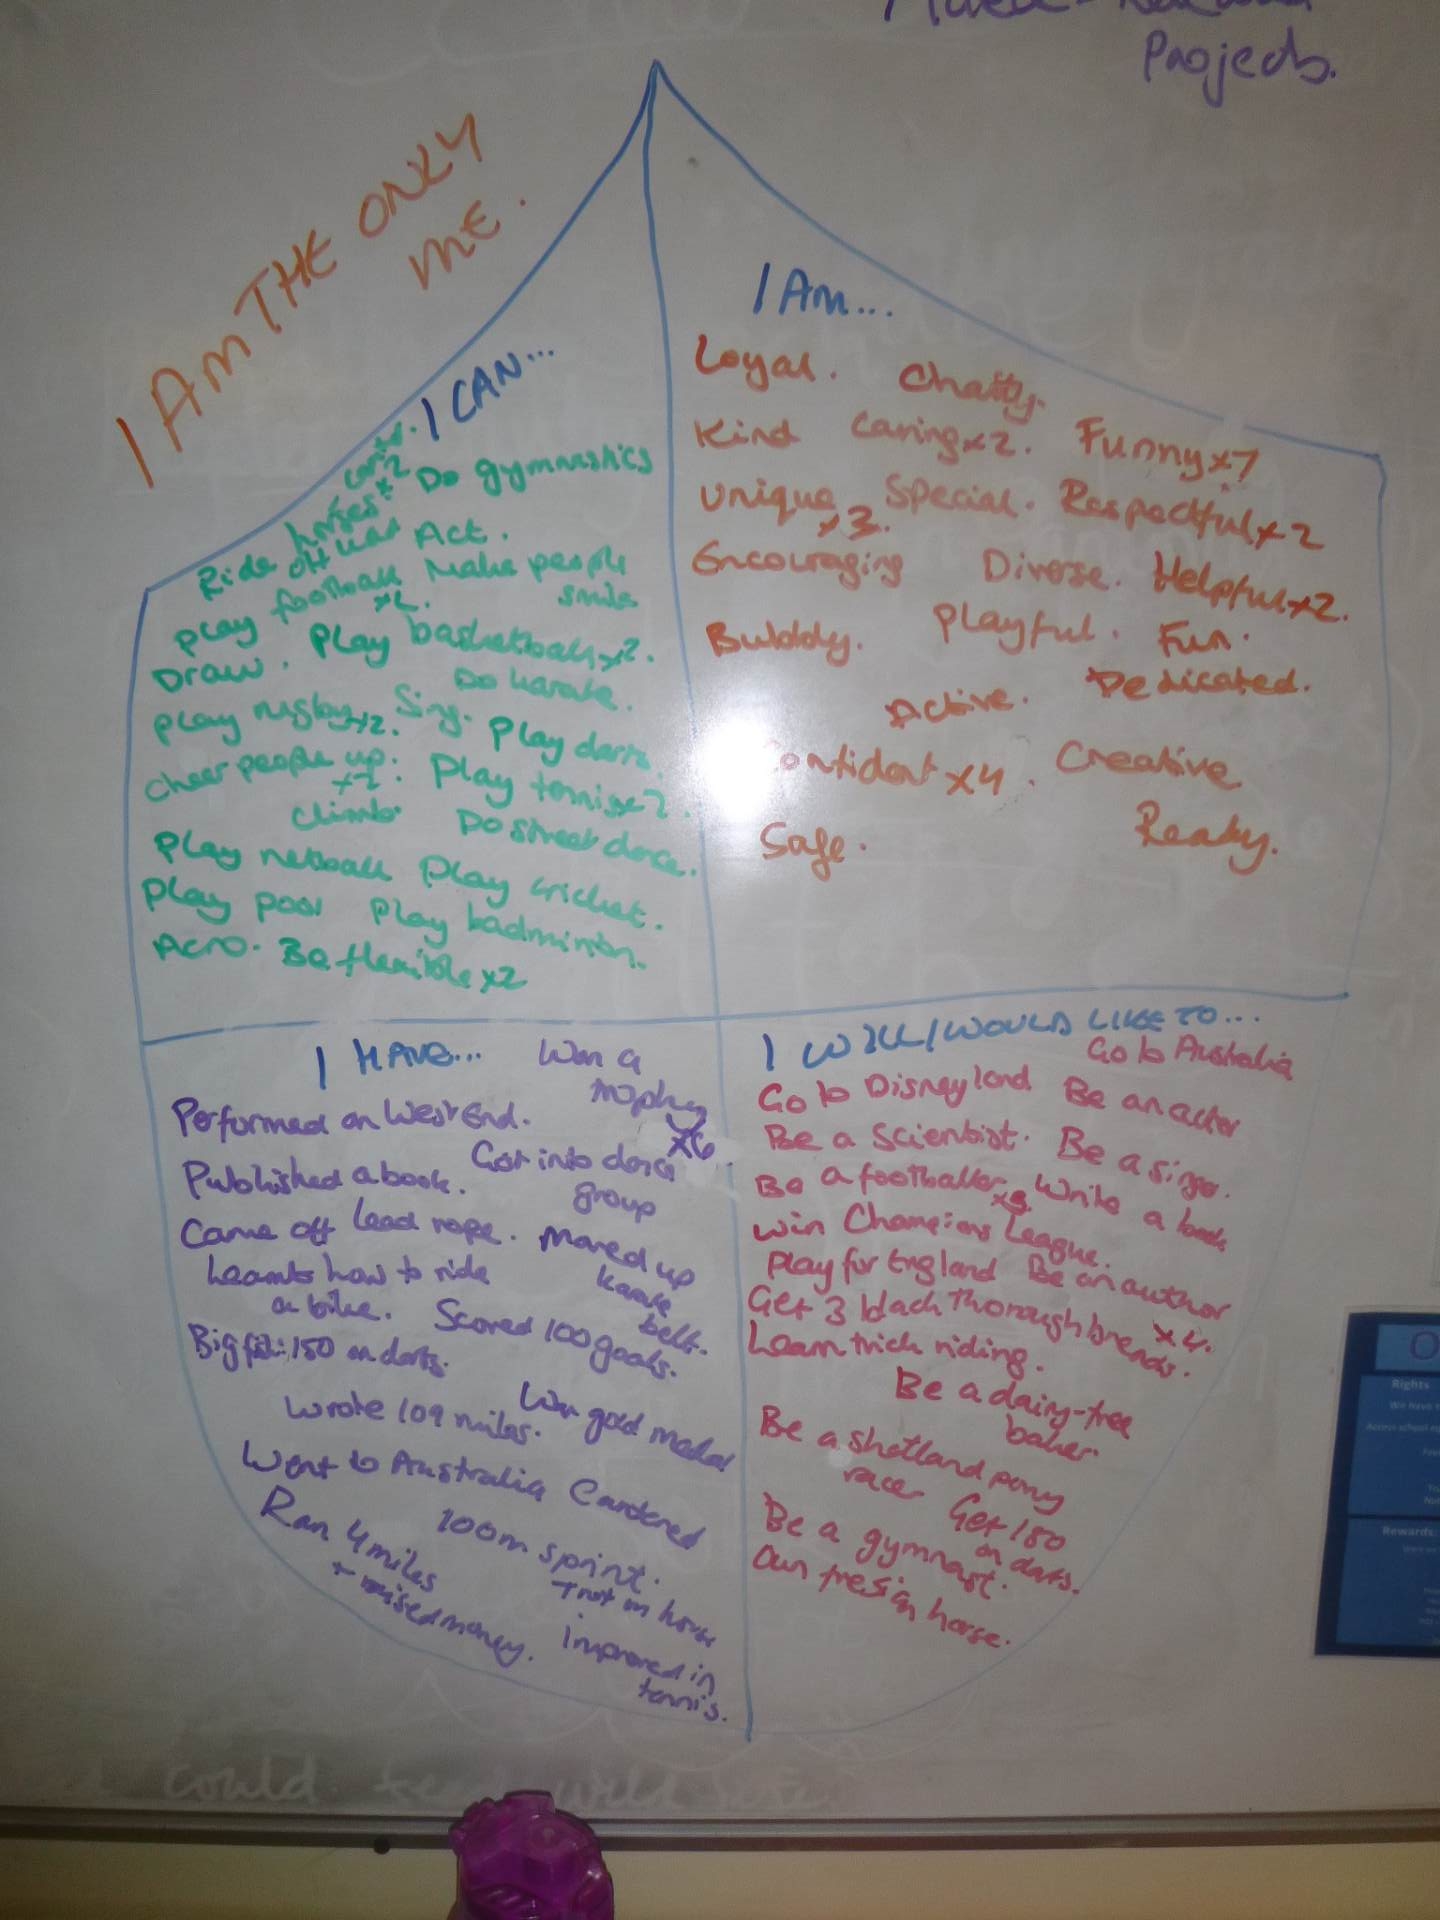 Projects.
I AM THE ONLY
ME.
I CAN...
Ride horses x2
Do gymnastics
Act.
Play football x2.
Make people
smile
Draw. Play basketball x2.
Do karate.
Play rugby x2. Sing. Play darts.
Cheer people up. x2. Play tennis x2.
Climb. Do street dance.
Play netball Play cricket.
Play pool Play badminton.
Acro. Be flexible x2
I Am...
Loyal. Chatty.
Kind Caring x2. Funny x7
Unique x3. Special. Respectful x2
Encouraging Diverse. Helpful x2.
Bubbly. Playful. Fun.
Active. Dedicated.
Confident x4. Creative
Safe. Ready.
I HAVE...
Won a
trophy
x6
Performed on West End.
Published a book. Got into dance
group
Came off lead rope. Moved up
karate
belt.
Learnt how to ride
a bike. Scored 100 goals.
150 on darts.
Wrote 109 miles. Won gold medal
Went to Australia
100m sprint.
Ran 4 miles
+ raised money.
Trot on horse
improved in
tennis.
I WILL/WOULD LIKE TO...
Go to Australia
Go to Disneyland Be an actor
Be a Scientist. Be a singer.
Be a footballer Write a book
Win Champions League.
Play for England Be an author
x4.
Get 3 black thoroughbreds.
Learn trick riding.
Be a dairy-free
baker.
Be a shetland pony
racer Get 180
on darts.
Be a gymnast.
Own fresian horse.
Rights
Rewards